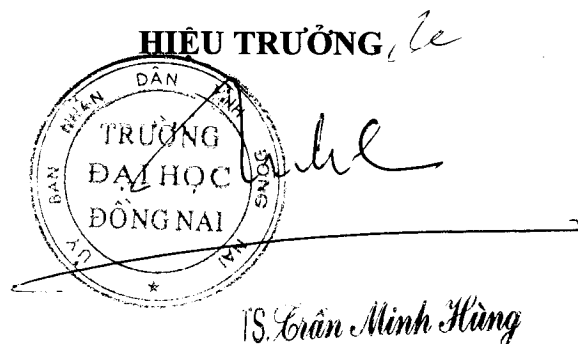 HIỆU TRƯỞNG
ỦY BAN NHÂN DÂN TỈNH ĐỒNG NAI
TRƯỜNG
ĐẠI HỌC
ĐỒNG NAI
★
TS. Trần Minh Hùng